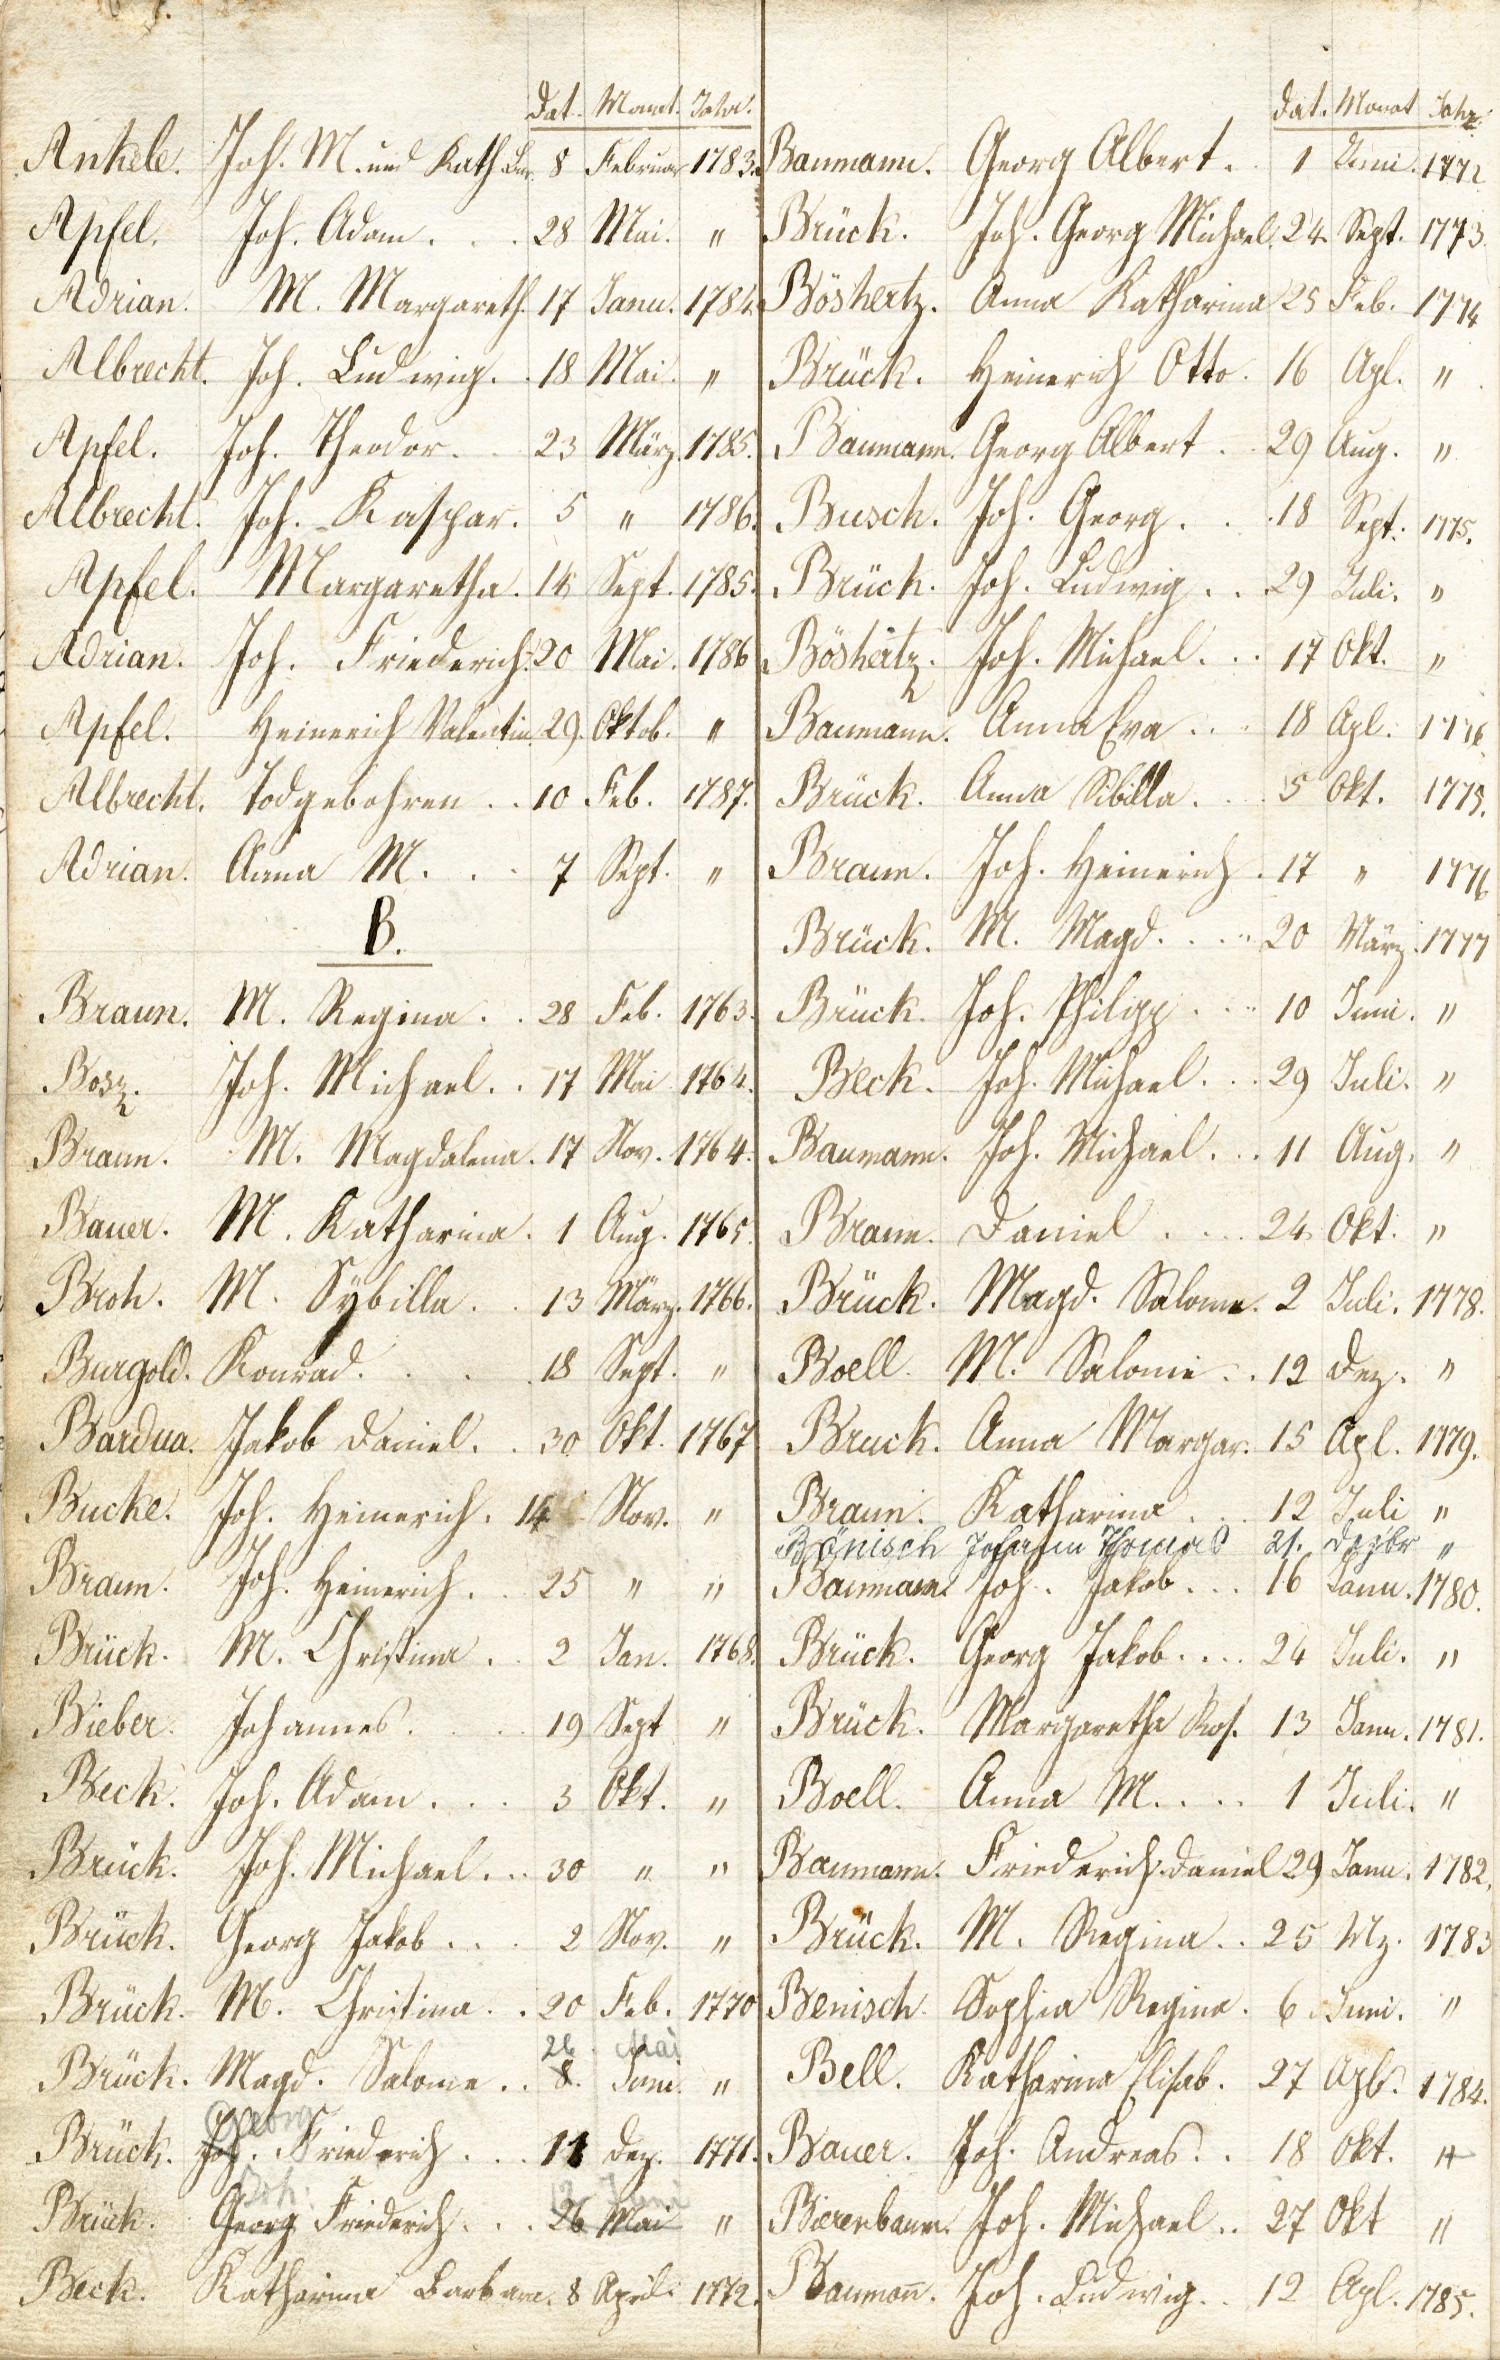 Dat. Monat. Jahr.
Ankele. Joh. M. und Kath. Bar. 8 Februar 1783.
Apfel. Joh. Adam . . . 28 Mai. "
Adrian. M. Margareth. 17 Janu. 1784.
Albrecht. Joh. Ludwig. . 18 Mai. "
Apfel. Joh. Theodor. . 23 März. 1785.
Albrecht. Joh. Kaspar. 5 " 1786.
Apfel. Margaretha. 14 Sept. 1785.
Adrian. Joh. Friederich. 20 Mai. 1786
Apfel. Heinerich Valentin. 29. Oktob. "
Albrecht. Todgebohren . . 10 Feb. 1787.
Adrian. Anna M. . . 7 Sept. "
B.
Braun. M. Regina . . 28 Feb. 1763.
Bosz. Joh. Michael. . 17 Mai 1764.
Braun. M. Magdalena. 17 Nov. 1764.
Bauer. M. Katharina. 1 Aug. 1765.
Broh. M. Sybilla. . 13 März. 1766.
Burgold. Konrad. . . . 18 Sept. "
Bardua. Jakob Daniel. . 30 Okt. 1767
Bucke. Joh. Heinerich. 14 Nov. "
Braun. Joh. Heinerich. . 25 " "
Brück. M. Christina . . 2 Jan. 1768.
Bieber. Johannes. . . . 19 Sept "
Beck. Joh. Adam. . . 3 Okt. "
Brück. Joh. Michael. . . 30 " "
Brück. Georg Jakob . . . 2 Nov. "
Brück. M. Christina. . . 20 Feb. 1770
26. Mai
Brück. Magd. Salome . . 8. Juni. "
Georg
Brück. Joh. Friederich. . . . 11 Dez. 1771.
Joh. 12 Juni
Brück. Georg Friederich. . . 26 Mai "
Beck. Katharina Barbara. 8 April 1772.
Dat. Monat Jahr.
Baumann. Georg Albert. . 1 Juni. 1772
Brück. Joh. Georg Michael. 24. Sept. 1773.
Böshertz. Anna Katharina 25 Feb. 1774
Brück. Heinerich Otto. 16 Apl. "
Baumann. Georg Albert . . 29 Aug. "
Busch. Joh. Georg. . . 18 Sept. 1775.
Brück. Joh. Ludwig . . 29 Juli. "
Böshertz. Joh. Michael. . . 17 Okt. "
Baumann. Anna Eva . . . 18 Apl. 1776
Brück. Anna Sibilla. . . 5 Okt. 1775.
Braun. Joh. Heinerich . 17 " 1776
Brück. M. Magd. . . . 20 März. 1777
Brück. Joh. Philipp . . . 10 Juni. "
Beck. Joh. Michael. . . 29 Juli. "
Baumann. Joh. Michael. . . 11 Aug. "
Braun. Daniel . . . 24 Okt. "
Brück. Magd. Salome. 2 Juli. 1778.
Boell. M. Salomé . . 12 Dez. "
Bruck. Anna Margar. 15 Apl. 1779.
Braun. Katharina . . 12 Juli "
Bönisch Johann Thomas 21. Dezbr "
Baumann. Joh. Jakob . . . 16 Janu. 1780.
Brück. Georg Jakob. . . . 24 Juli. "
Brück. Margaretha Ros. 13 Janu. 1781.
Boell. Anna M. . . . 1 Juli. "
Baumann. Friederich Daniel 29 Janu. 1782.
Brück. M. Regina . . 25 Mz. 1783
Benisch. Sophia Regina. 6 Juni. "
Bell. Katharina Elisab. 27 Apl. 1784.
Bauer. Joh. Andreas. . 18 Okt. "
Bierenbaum. Joh. Michael . . 27 Okt "
Baumañ. Joh. Ludwig. . 12 Apl. 1785.